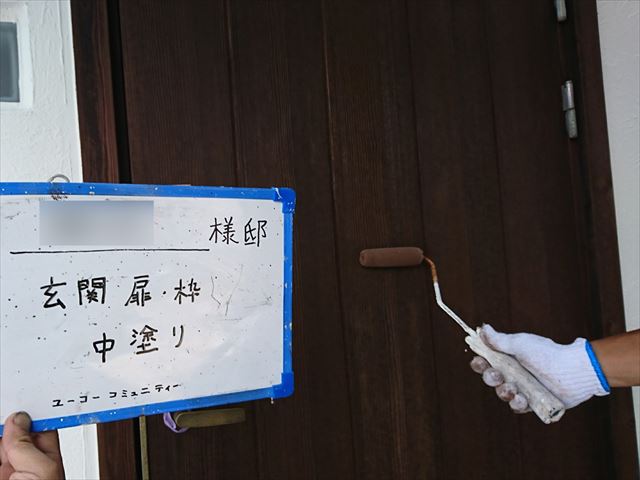 様邸
玄関扉・枠
中塗り
ユーコーコミュニティー